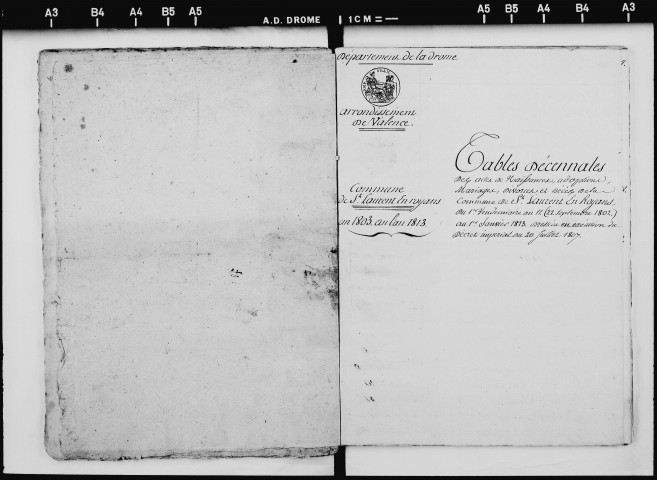 A3 B4 A4 B5 A5 A.D. DROME 1CM= A5 B5 A4 B4 A3
Département de la Drome
arrondissement
De Valence.
Commune
de St. Laurent En royans
an 1803 au lan 1813.
Tables Décennales
Des actes de Naissances, adoptions,
Mariages, Divorces et décès de la
Commune de St. Laurent En Royans,
du 1er Vendemiaire an 11 (22 septembre 1802)
au 1er Janvier 1813. en execution du
Décret imperial du 20 Juillet 1807.